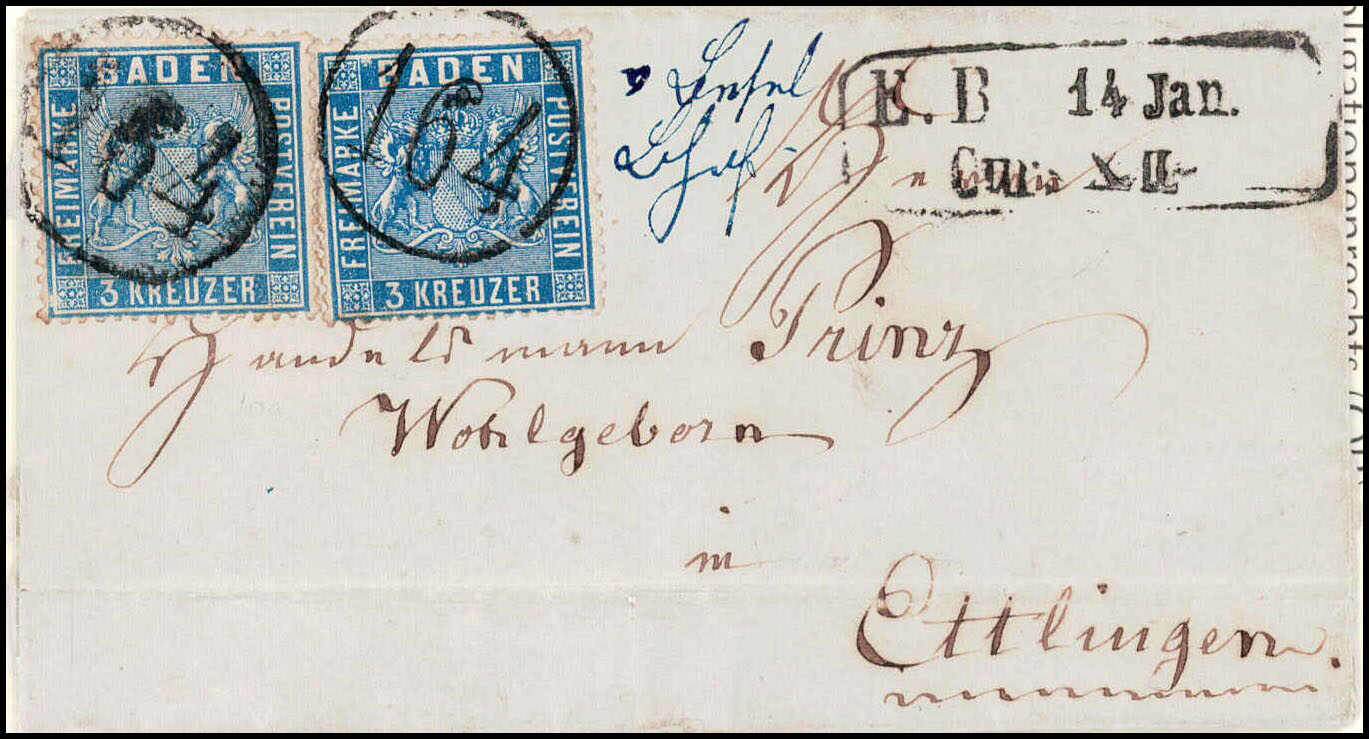 BADEN
FREIMARKE
POSTVEREIN
3 KREUZER
BADEN
FREIMARKE
POSTVEREIN
3 KREUZER
164
164
E. B 14 Jan.
Cur. XII
Herrn
Handelsmann Prinz
Wohlgeborn
in
Ettlingen.